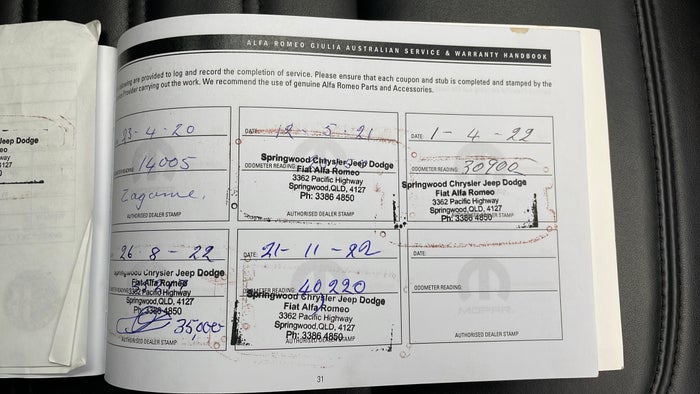 ALFA ROMEO GIULIA AUSTRALIAN SERVICE & WARRANTY HANDBOOK
are provided to log and record the completion of service. Please ensure that each coupon and stub is completed and stamped by the
Provider carrying out the work. We recommend the use of genuine Alfa Romeo Parts and Accessories.
Jeep Dodge
eo
way
4127
23-4-20
14005
AUTHORISED DEALER STAMP
DATE: 12-5-21
Springwood Chrysler Jeep Dodge
ODOMETER READING:
Fiat Alfa Romeo
3362 Pacific Highway
Springwood,QLD, 4127
Ph: 3386 4850
AUTHORISED DEALER STAMP
DATE: 1-4-22
ODOMETER READING: 30900
Springwood Chrysler Jeep Dodge
Fiat Alfa Romeo
3362 Pacific Highway
Springwood,QLD, 4127
Ph: 3386 4850
AUTHORISED DEALER STAMP
26-8-22
Springwood Chrysler Jeep Dodge
Fiat Alfa Romeo
3362 Pacific Highway
Springwood,QLD, 4127
Ph: 3386 4850
35,000
AUTHORISED DEALER STAMP
DATE: 21-11-22
ODOMETER READING: 40220
Springwood Chrysler Jeep Dodge
Fiat Alfa Romeo
3362 Pacific Highway
Springwood,QLD, 4127
Ph: 3386 4850
AUTHORISED DEALER STAMP
DATE:
ODOMETER READING:
MOPAR
AUTHORISED DEALER STAMP
31